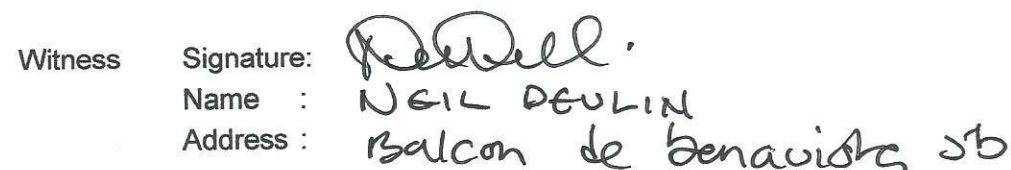 Witness Signature:
Name : NEIL DEVLIN
Address : Balcon de benavista 5b